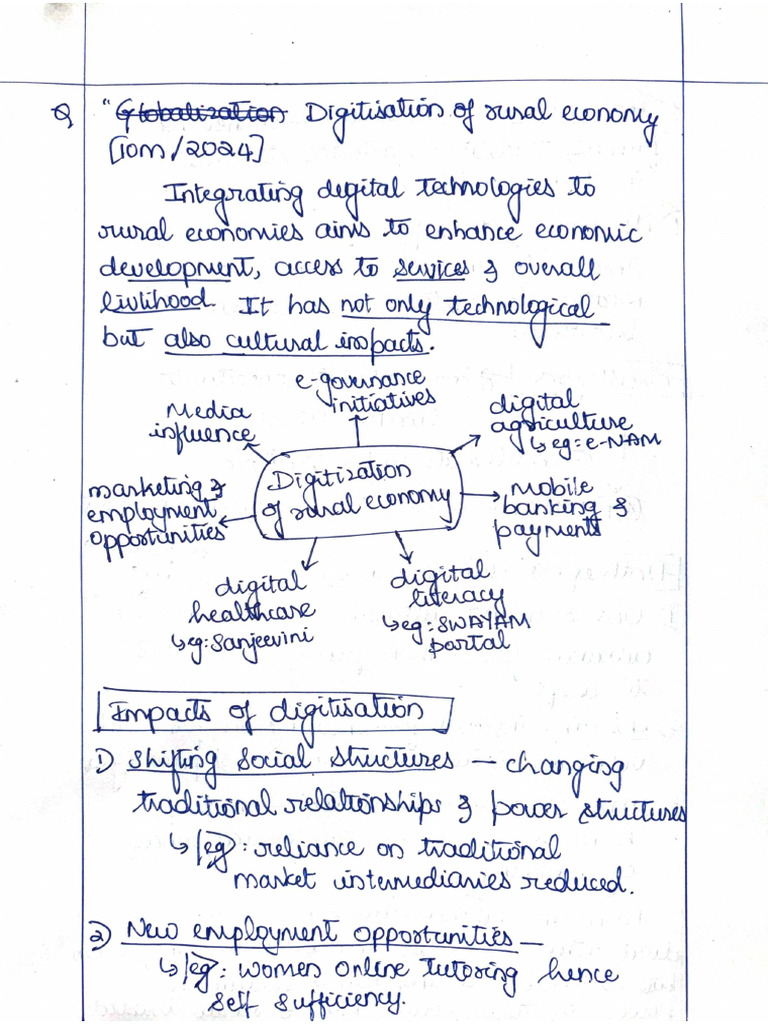 Q "Globalization Digitisation of rural economy
[10m/2024]
Integrating digital technologies to
rural economies aims to enhance economic
development, access to services & overall
livlihood. It has not only technological
but also cultural impacts.
e-governance
initiatives
Media
influence
digital
agriculture
↳ eg:e-NAM
Digitization
of rural economy
marketing &
employment
opportunities
Mobile
banking &
payments
digital
healthcare
↳ eg: Sanjeevini
digital
literacy
↳ eg: SWAYAM
portal
Impacts of digitisation
1) Shifting social structures — changing
traditional relationships & power structures
↳ eg: reliance on traditional
market intermediaries reduced.
2) New employment opportunities —
↳ eg: women online tutoring hence
self sufficiency.